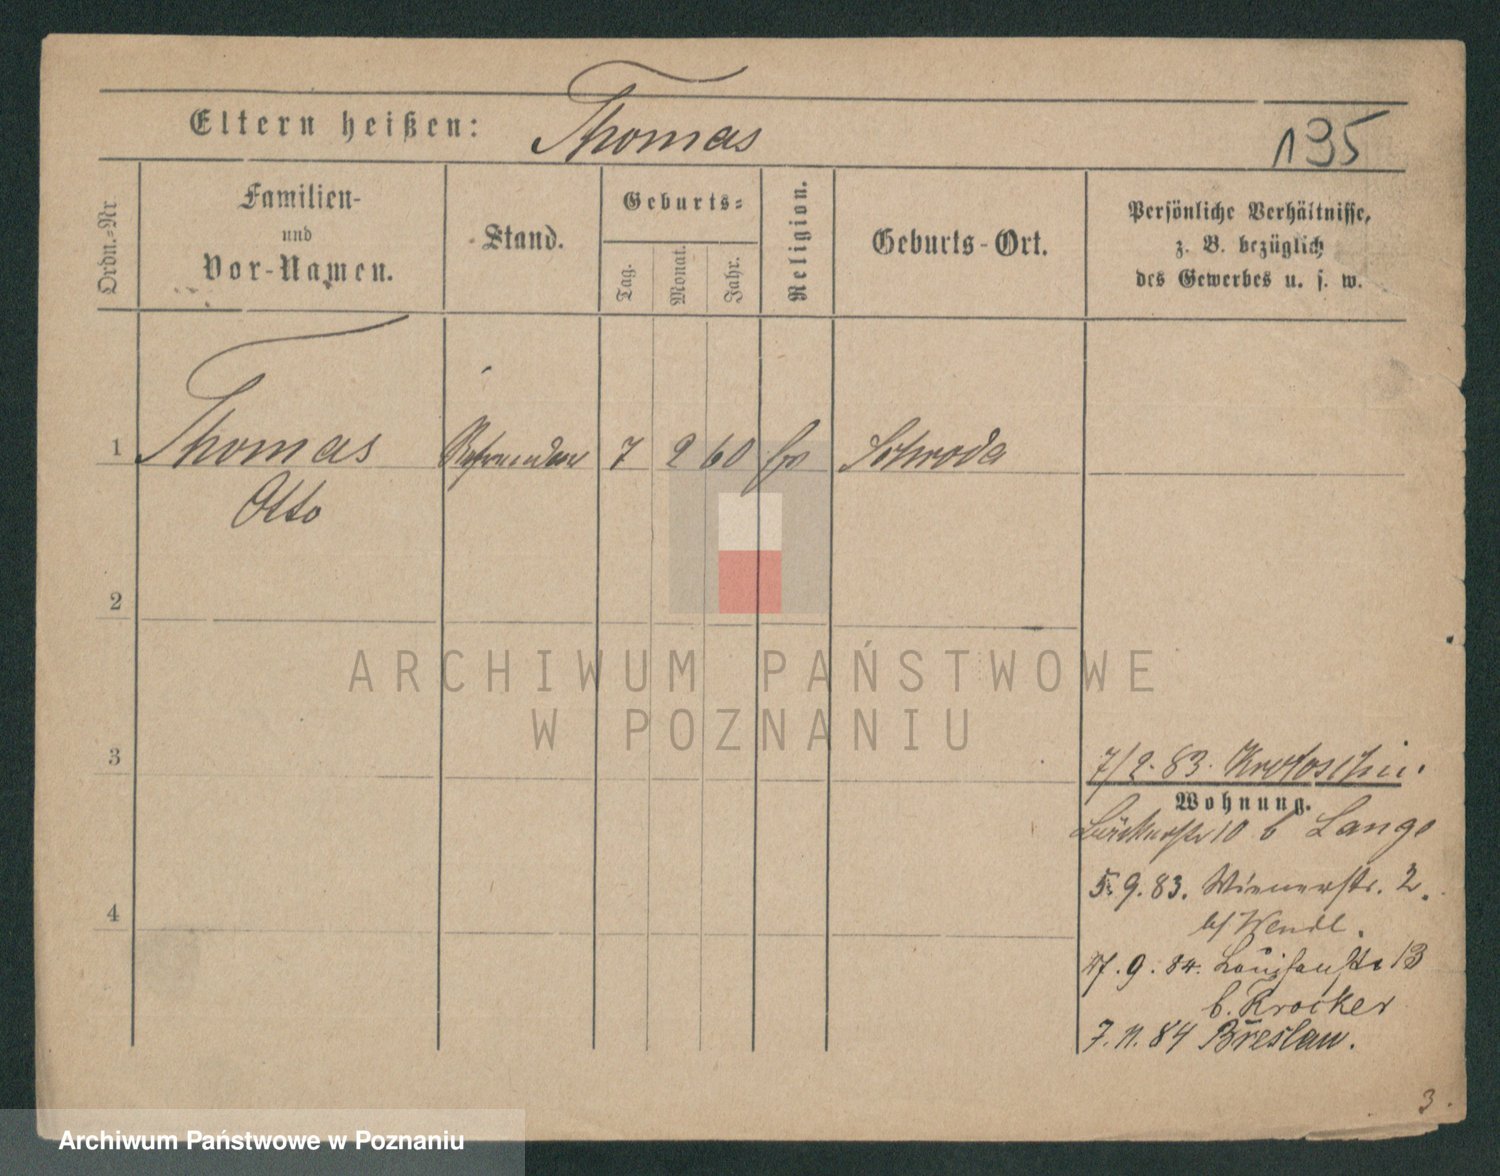 Eltern heißen: Thomas
195
Ordn.-Nr
Familien-
und
Vor-Namen.
Stand.
Geburts-
Tag.
Monat.
Jahr.
Religion.
Geburts-Ort.
Persönliche Verhältnisse,
z. B. bezüglich
des Gewerbes u. s. w.
1 Thomas Referendar 7 2 60 Schroda
Otto
2
3
4
7/2. 83. Krotoschin.
Wohnung.
10 b Lange
5. 9. 83. Wienerstr. 2.
b/ Wendl.
17. 9. 84. Louisenstr 13
b. Krocker
7. 11. 84 Breslau.
3.
ARCHIWUM PAŃSTWOWE
W POZNANIU
Archiwum Państwowe w Poznaniu